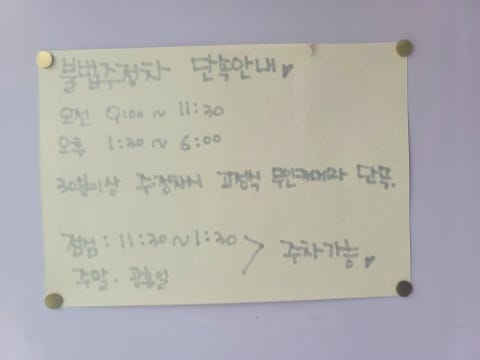 불법주정차 단속안내♥
오전 9:00 ~ 11:30
오후 1:30 ~ 6:00
30분이상 주정차시 고정식 무인카메라 단속.
점심 : 11:30 ~ 1:30 > 주차가능♥
주말 · 공휴일